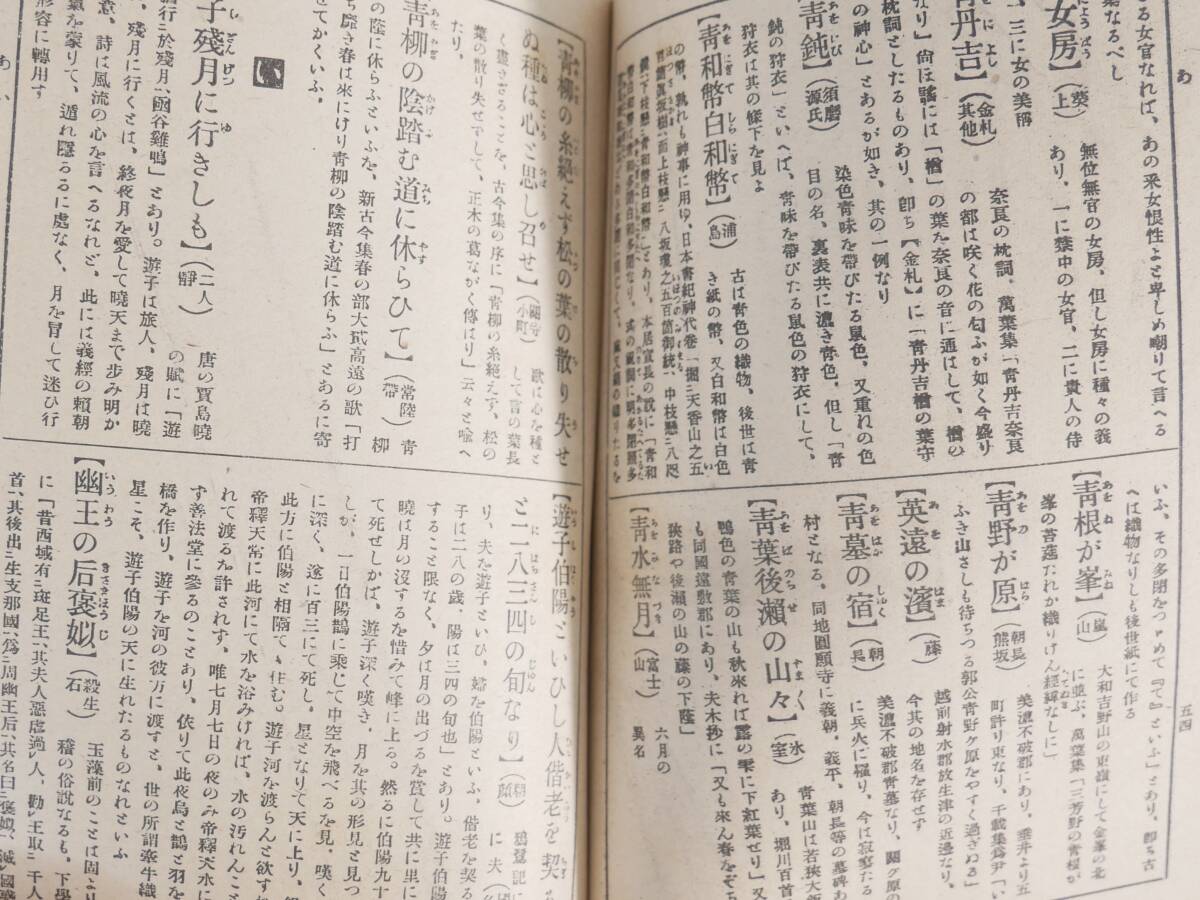 あ
五四
る女官なれば、あの釆女恨性よと卑しめ嘲りて言へる
なるべし
女房】(葵上)
無位無官の女房、但し女房に種々の義
あり、一に禁中の女官、二に貴人の侍
、三に女の美稱
青丹吉】(金札其他)
奈良の枕詞、萬葉集「青丹吉奈良
の都は咲く花の匂ふが如く今盛り
なり」尙ほ謠には「楢」の葉を奈良の音に通はして、楢の
枕詞としたるものあり、卽ち【金札】に「青丹吉楢の葉守
の神心」とあるが如き、其の一例なり
青鈍】(須磨源氏)
染色青味を帶びたる鼠色、又重れの色
目の名、裏表共に濃き青色、但し「青
鈍の狩衣」といへば、青味を帶びたる鼠色の狩衣にして、
狩衣は其の條下を見よ
【青和幣白和幣】(浦島)
古は青色の織物、後世は青
き紙の幣、又白和幣は白色
の幣、孰れも神事に用ゆ、日本書紀神代卷「掘天香山之五
いふ、その多閉をつゞめて『て』といふ」とあり、卽ち古
へは織物なりしも後世紙にて作る
【青根が峯】(嵐山)
大和吉野山の東嶺にして金峯の北
に並ぶ、萬葉集「三芳野の青根が
峯の苔莚たれか織りけん經緯なしに」
【青野が原】(朝長熊坂)
美濃不破郡にあり、垂井より五
町許り東なり、千載集爲尹「い
ふき山さしも待ちつる郭公青野ヶ原をやすく過ぎぬる」
【英遠の濱】(藤)
越前射水郡放生津の近邊なり、
今其の地名を存せず
【青墓の宿】(朝長)
美濃不破郡青墓なり、關ヶ原の
に兵火に罹り、今は寂寥たる
村となる、同地圓願寺に義朝、義平、朝長等の墓碑あ
【青葉後瀬の山々】(氷室)
青葉山は若狹大飯
あり、堀川百首
鴨色の青葉の山も秋來れば露の雫に下紅葉せり」又
も同國遠敷郡にあり、夫木抄に「又も來ん春をぞ
狹路や後瀬の山の藤の下蔭」
【青水無月】(富士山)
六月の
異名
【青柳の糸絶えず松の葉の散り失せ
ぬ種は心と思し召せ】(關寺小町)
歌は心を種と
して言の葉長
く盡きざることを、古今集の序に「青柳の糸絶えず、松の
葉の散り失せずして、正木の葛ながく傳はり」云々と喩へ
たり、
青柳の陰踏む道に休らひて】(常陸帶)
青柳
の陰に休らふといふを、新古今集春の部大貳高遠の歌「打
ち靡き春は來にけり青柳の陰踏む道に休らふ」とあるに寄
せてかくいふ、
い
子殘月に行きしも】(二人靜)
唐の賈島曉
の賦に「遊
行於殘月、函谷雞鳴」とあり。遊子は旅人、殘月は曉
、殘月に行くとは、終夜月を愛して曉天まで步み明か
意、詩は風流の心を言へるなれど、此には義經の賴朝
氣を蒙りて、遁れ隱るゝに處なく、月を冒して迷ひ行
形容に轉用す
あ い
【遊子伯陽といひし人偕老を契
と二八三四の旬なり】(朝顏)
鴉鷺記に
に夫(
り、夫を遊子といひ、婦を伯陽といふ、偕老を契る
子は二八の歲、陽は三四の旬也」とあり。遊子伯陽
すること限なく、夕は月の出づるを賞して共に里に
曉は月の沒するを惜みて峰に上る。然るに伯陽九十
て死せしかば、遊子深く嘆き、月を其の形見と見つ
しが、一日伯陽鵲に乘じて中空を飛べるを見、嘆く
に深く、遂に百三にて死し、星となりて天に上り、
此方に伯陽と相隔てゝ住む。遊子河を渡らんと欲す
帝釋天常に此河にて水を浴みければ、水の汚れんこ
れて渡るを許されず、唯七月七日の夜のみ帝釋天水に
ず善法堂に參るのことあり、依りて此夜烏と鵲と羽を
橋を作り、遊子を河の彼方に渡すと、世の所謂牽牛織
星こそ、遊子伯陽の天に生れたるものなれといふ
【幽王の后褒姒】(殺生石)
玉藻前のことは固より
稽の俗說なるも、下學
に「昔西域有斑足王、其夫人惡虐過人、勸王取千人
首、其後出生支那國、爲周幽王后、其名曰褒姒、滅國惑